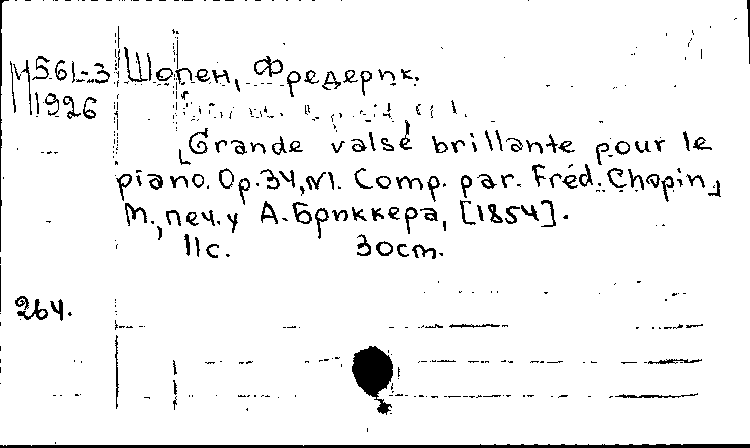 М561-3 Шопен, Фредерик.
1926
Grande valse brillante pour le
piano. Op. 34, №1. Comp. par. Fréd. Chopin,
М., печ. у А. Бриккера, [1854].
11с. 30cm.
264.